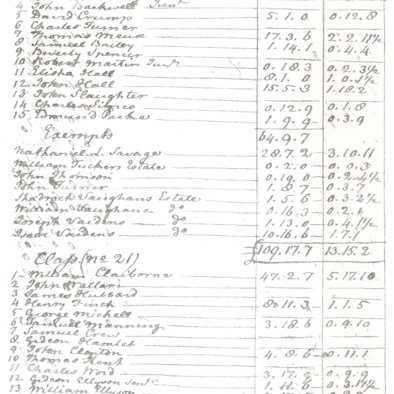 4 John Backwell Junr
5 David Crump 5.1.0 0.12.8
6 Charles Turner
7 Thomas Meux 17.3.6 2.2.11½
8 Samuel Bailey 1.14.1 0.4.4
9 Beverly Spencer
10 Robert Martin Junr 0.18.3 0.2.3½
11 Elisha Hall 8.1.0 1.0.1½
12 John Hall 15.5.3 1.18.2
13 John Slaughter
14 Charles 0.12.9 0.1.8
15 Edmund 1.9.9 0.3.9
Exempts 64.9.7
Nathaniel L. Savage 28.7.2 3.10.11
William Estate 0.2.0 0.0.3
John Thomson 0.19.0 0.2.4½
John Turner 1.8.7 0.3.7
Shadrack Vaughans Estate 1.5.6 0.3.2½
William Vaughans do 0.16.3 0.2.1
Joseph Vaidens do 1.13.0 0.4.1½
Isaac Vaidens do 10.16.6 1.7.1
109.17.7 13.15.2
Class (no 21)
1 William Claiborne 47.2.7 5.17.10
2 John Waller
3 James Hubbard
4 Henry Finch 8.11.3 1.1.5
5 George Michell
6 Samuel Manning 3.18.6 0.9.10
7 Samuel Crew
8 Gideon Hamlet
9 John Clayton 4.8.6 0.11.1
10 Thomas Kemp
11 Charles Word 3.17.9 0.9.9
12 Gideon Ellyson Senr 1.11.6 0.3.11½
13 William Ellyson